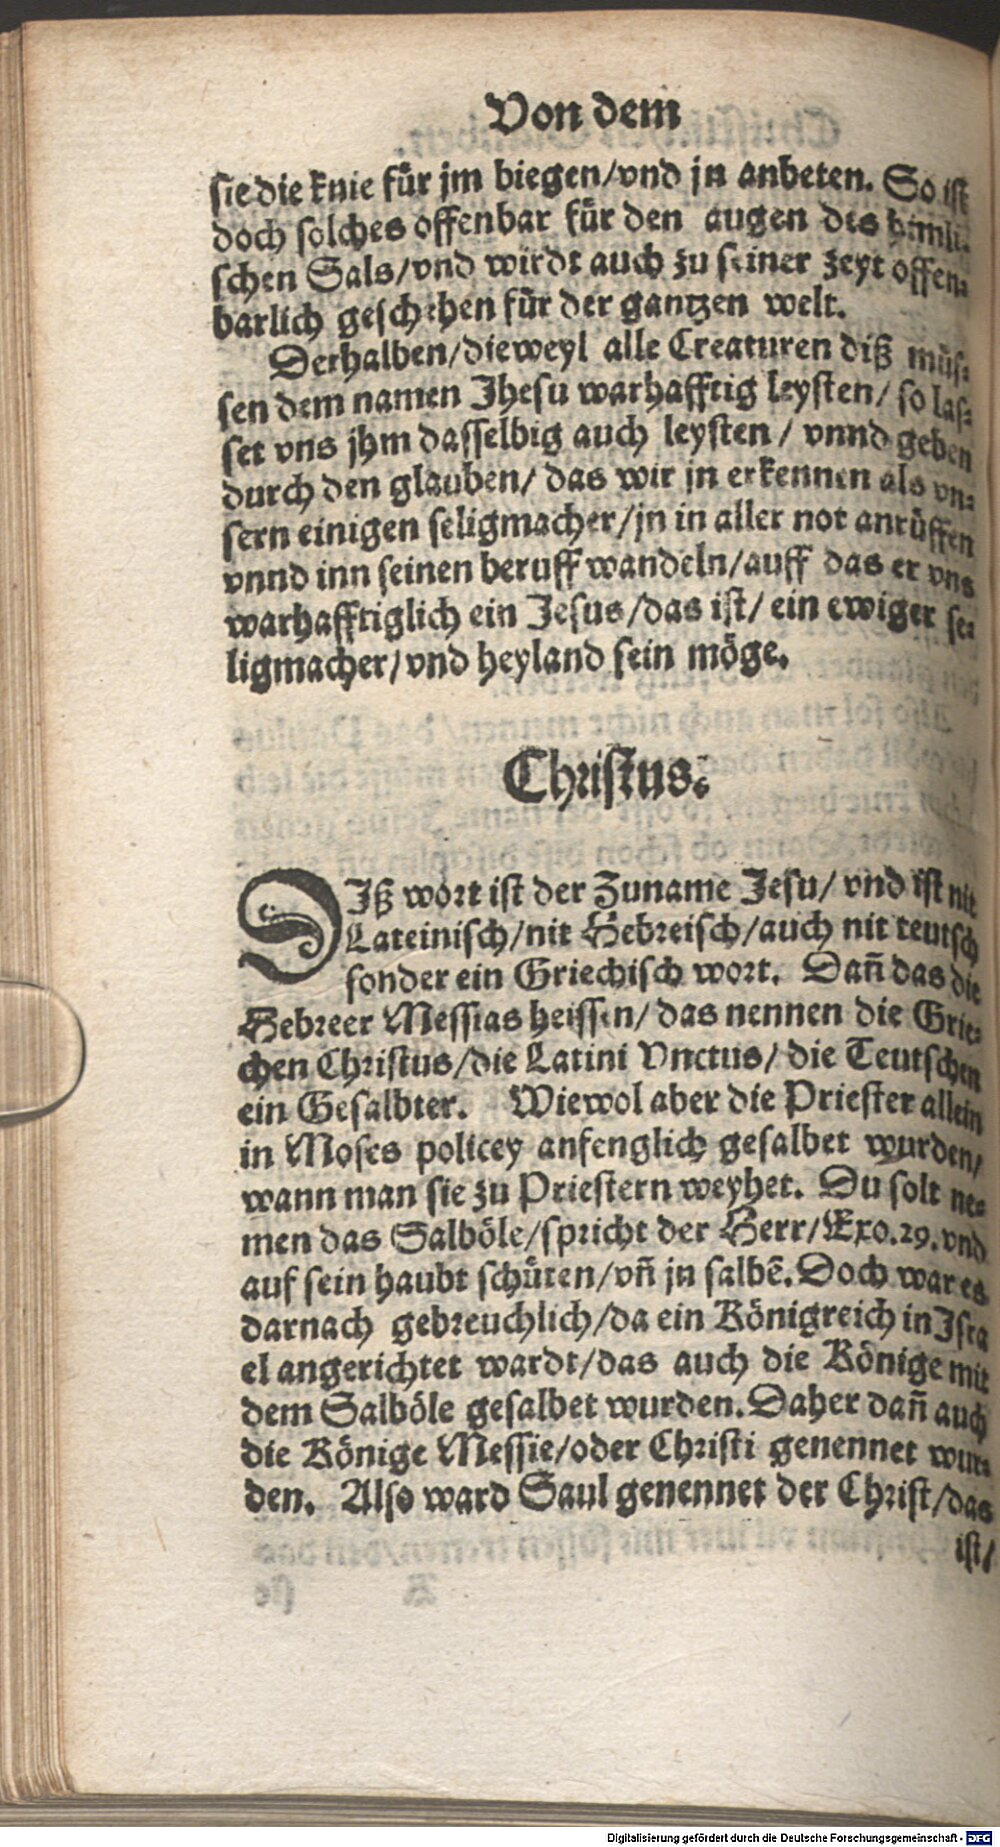 Von dem
sie die knie für jm biegen/vnd jn anbeten. So ist
doch solches offenbar für den augen des himli⸗
schen Sals/vnd wirdt auch zu seiner zeyt offen⸗
barlich geschehen für der gantzen welt.
Derhalben/dieweyl alle Creaturen diß müs⸗
sen dem namen Jhesu warhafftig leysten/ so las⸗
set vns jhm dasselbig auch leysten/ vnnd geben
durch den glauben/ das wir jn erkennen als vn⸗
sern einigen seligmacher/jn in aller not anrüffen
vnnd inn seinen beruff wandeln/auff das er vns
warhafftiglich ein Jesus/das ist/ ein ewiger se⸗
ligmacher/vnd heyland sein möge.
Christus.
DIß wort ist der Zuname Jesu/ vnd ist nit
Lateinisch/nit Hebreisch/auch nit teutsch
sonder ein Griechisch wort. Dañ das die
Hebreer Messias heissen/ das nennen die Grie⸗
chen Christus/die Latini Vnctus/ die Teutschen
ein Gesalbter. Wiewol aber die Priester allein
in Moses policey anfenglich gesalbet wurden/
wann man sie zu Priestern weyhet. Du solt ne⸗
men das Salböle/spricht der Herr/Exo.29.vnd
auf sein haubt schüten/vñ jn salbẽ. Doch war es
darnach gebreuchlich/da ein Königreich in Isra
el angerichtet wardt/das auch die Könige mit
dem Salböle gesalbet wurden. Daher dañ auch
die Könige Messie/oder Christi genennet wur⸗
den. Also ward Saul genennet der Christ/das
ist/
Digitalisierung gefördert durch die Deutsche Forschungsgemeinschaft - DFG